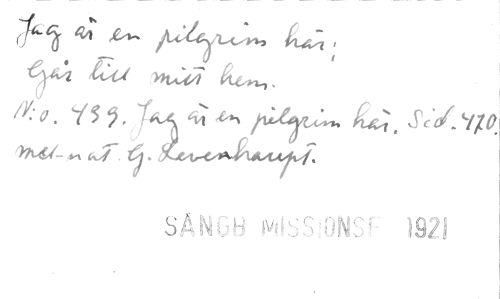 Jag är en pilgrim här;
Går till mitt hem.
N:o. 499. Jag är en pilgrim här. Sid. 470.
med not. G. Levenhaupt.
SÅNGB MISSIONSF 1921